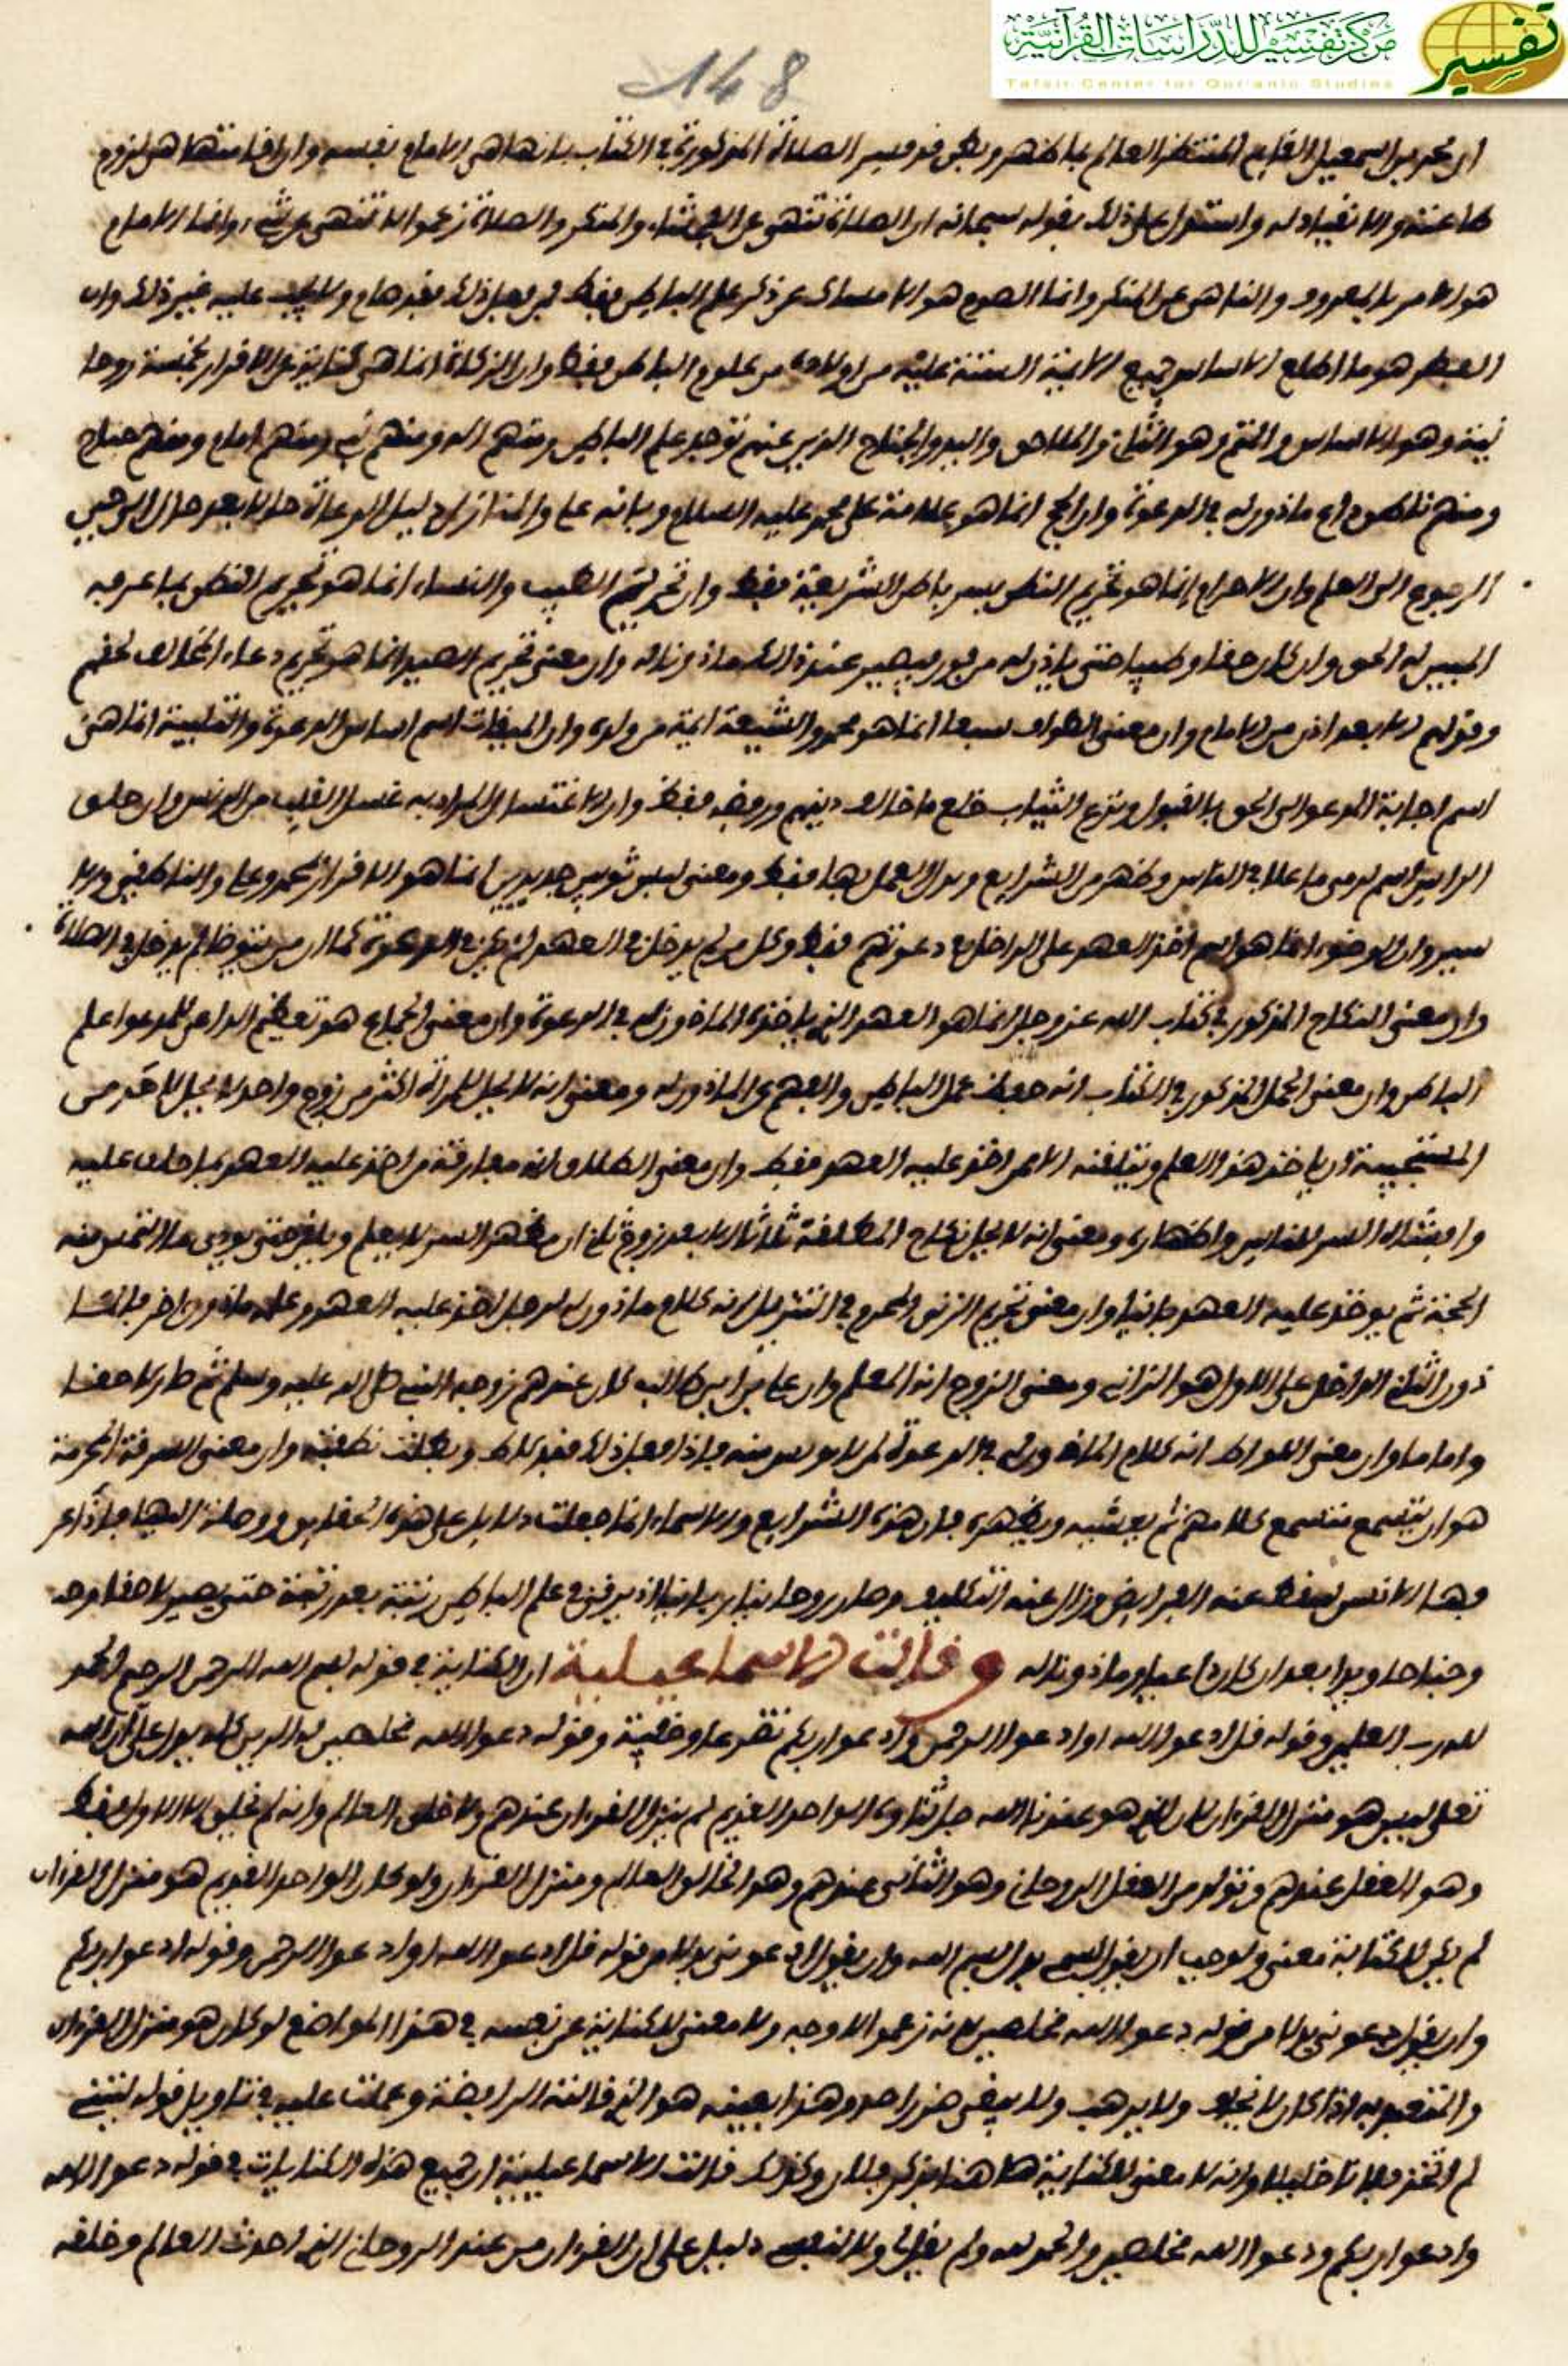 مركز تفسير للدراسات القرآنية
Tafsir Center for Qur'anic Studies
تفسير
148
ابن محمد بن اسمعيل القايم المنتظر العالم بما ظهر وبطن فد فسر الصلاة المذكورة في الكتاب بانها هي الامام نفسه وان افامتها هي لزوم
طاعته والانفياد له واستدل على ذلك بفوله سبحانه ان الصلاة تنهى عن الفحشاء والمنكر والصلاة زعموا لا تنهى عن شيء وانما الامام
هو الامر بالمعروف والناهي عن المنكر وانما الصوم هو الامساك عن ذكر علم الباطن ففط فمن فعل ذلك ففد صام ولا يجب عليه غير ذلك وان
الفطر هو ما اطلع الاساس جميع الايمة الستة عليه من اولاده من علوم الباطن ففط وان الزكاة انما هي كناية عن الافرار بخمسة روحا
نية وهو الاساس والمتم وهو الثاني واللاحق واليد والجناح الذين عنهم توجد علم الباطن ومنهم اله ومنهم نبي ومنهم امام ومنهم جناح
ومنهم ناطق داع ماذون له في الدعوة وان الحج انما هو علامة على محمد عليه السلام وبانه علي والمنازل دليل الدعاة حالا بعد حال الى حين
الرجوع الى العلم وان الاحرام انما هو تحريم النطق بسر باطن الشريعة ففط وان تحريم الطيب والنساء انما هو تحريم النطق بما عرفه
المبين له الحق وان كان حفا وطيبا حتى ياذن له من فوفه فيصير عند ذلك ماذونا له وان معنى تحريم الصيد انما هو تحريم دعاء المخالف لحفهم
وفولهم الا بعد اذن من الامام وان معنى الطواف سبعا انما هو محمد والشيعة ايمة من ولده وان الميفات اسم اساس الدعوة والتلبية انما هي
اسم اجابة المدعو الى الحق بالفبول ونزع الثياب خلع ما خالف دينهم ورفضه ففط وان الاغتسال المراد به غسل الفلب من الدنس وان حلق
الراس اسم لرمي ما علا في الناس وظهر من الشرايع وترك العمل بها ففط ومعنى لبس ثوبين جديدين انما هو الافرار بمحمد وعلي والناطفين والا
سس وان الوضوء انما هو اسم اخذ العهد على الداخل في دعوتهم ففط وكل من لم يدخل في العهد لم يكن في الدعوة كما ان من لم يتوضا لم يدخل في الصلاة
وان معنى النكاح المذكور في كتاب الله عز وجل انما هو العهد الذي ياخذه الماذون له في الدعوة وان معنى الجماع هو تعليم الداعي للمدعو علم
الباطن وان معنى الحمل المذكور في الكتاب انه حفظ علم الباطن والفهم عن الماذون له ومعنى انه لا يحل للمراة اكثر من زوج واحد لا يحل لاحد من
المستجيبة ان ياخذ هذا العلم ويتلفنه الا عمن اخذ عليه العهد ففط وان معنى الطلاق انه مفارفة من اخذ عليه العهد بما حلف عليه
وافشاء السر للناس واظهاره ومعنى انه لا يحل نكاح المطلفة ثلاثا الا بعد زوج ثان ان مظهر السر لا يعلم ولا يفر حتى يودي ما التمس منه
الحجة ثم يوخذ عليه العهد ثانيا وان معنى تحريم الزنى والمحرم في التنزيل انه كلام ماذون له لرجل اخذ عليه العهد وعلمه ماذون اخر فالما
ذون الثاني الداخل على الاول هو الزاني ومعنى الزوج انه المعلم وان علي بن ابي طالب كان عندهم زوجه النبي صلى الله عليه وسلم ثم صار لاحفا
واماما وان معنى اللواط انه كلام الماذون له في الدعوة لمن لا يونس منه فاذا فعل ذلك ففد لاط وبطلت نطفته وان معنى السرفة المحرمة
هو ان يتسمع متسمع كلامهم ثم يفشيه ويظهره فان هذه الشرايع والاسماء انما جعلت دلايل على هذه الحفايق ووصلة اليها فاذا عر
فها الانس سفط عنه الفرايض وزال عنه التكليف وصار روحانيا ربانيا اذ يرفى في علم الباطن رتبة بعد رتبة حتى يصير لاحفا وحجة
وجناحا ويدا بعد ان كان داعيا وماذونا له وفالت الاسماعيلية ان الكناية في فوله بسم الله الرحمن الرحيم الحمد
لله رب العلمين وفوله فل ادعوا الله او ادعوا الرحمن وادعوا ربكم تضرعا وخفية وفوله دعوا الله مخلصين له الدين كله يدل على ان الله
تعلى ليس هو منزل الفرءان لان الذي هو عندنا الله جل ثناوه الواحد الفديم لم ينزل الفرءان عندهم ولا خلق العالم وانه لم يخلق الا الاول ففط
وهو العفل عندهم وتولد من العفل الروحاني وهو الثاني عندهم وهو الخالق العالم ومنزل الفرءان ولو كان الواحد الفديم هو منزل الفرءان
لم يكن للكناية معنى ولوجب ان يفول بسمي بدل بسم الله وان يفول ادعوني بدلا من فوله فل ادعوا الله او ادعوا الرحمن وفوله ادعوا ربكم
وان يفول دعوني بدلا من فوله دعوا الله مخلصين لانه زعموا لا وجه ولا معنى للكناية عن نفسه في هذا المواضع لو كان هو منزل الفرءان
والمتعبد به اذا كان لا يخاف ولا يرهب ولا يتفي ضررا حد وهذا بعينه هو الذي فالته الرافضة وعملت عليه في تاويل فوله ليتني
لم اتخذ فلانا خليلا وانه لا معنى للكناية هاهنا بذكر فلان وكذلك فالت الاسماعيلية ان جميع هذه الكنايات في فوله دعوا الله
وادعوا ربكم ودعوا الله مخلصين والحمد لله ولم يفل لي ولا لنفسي دليل على ان الفرءان من عند الروحاني الذي احدث العالم وخلفه